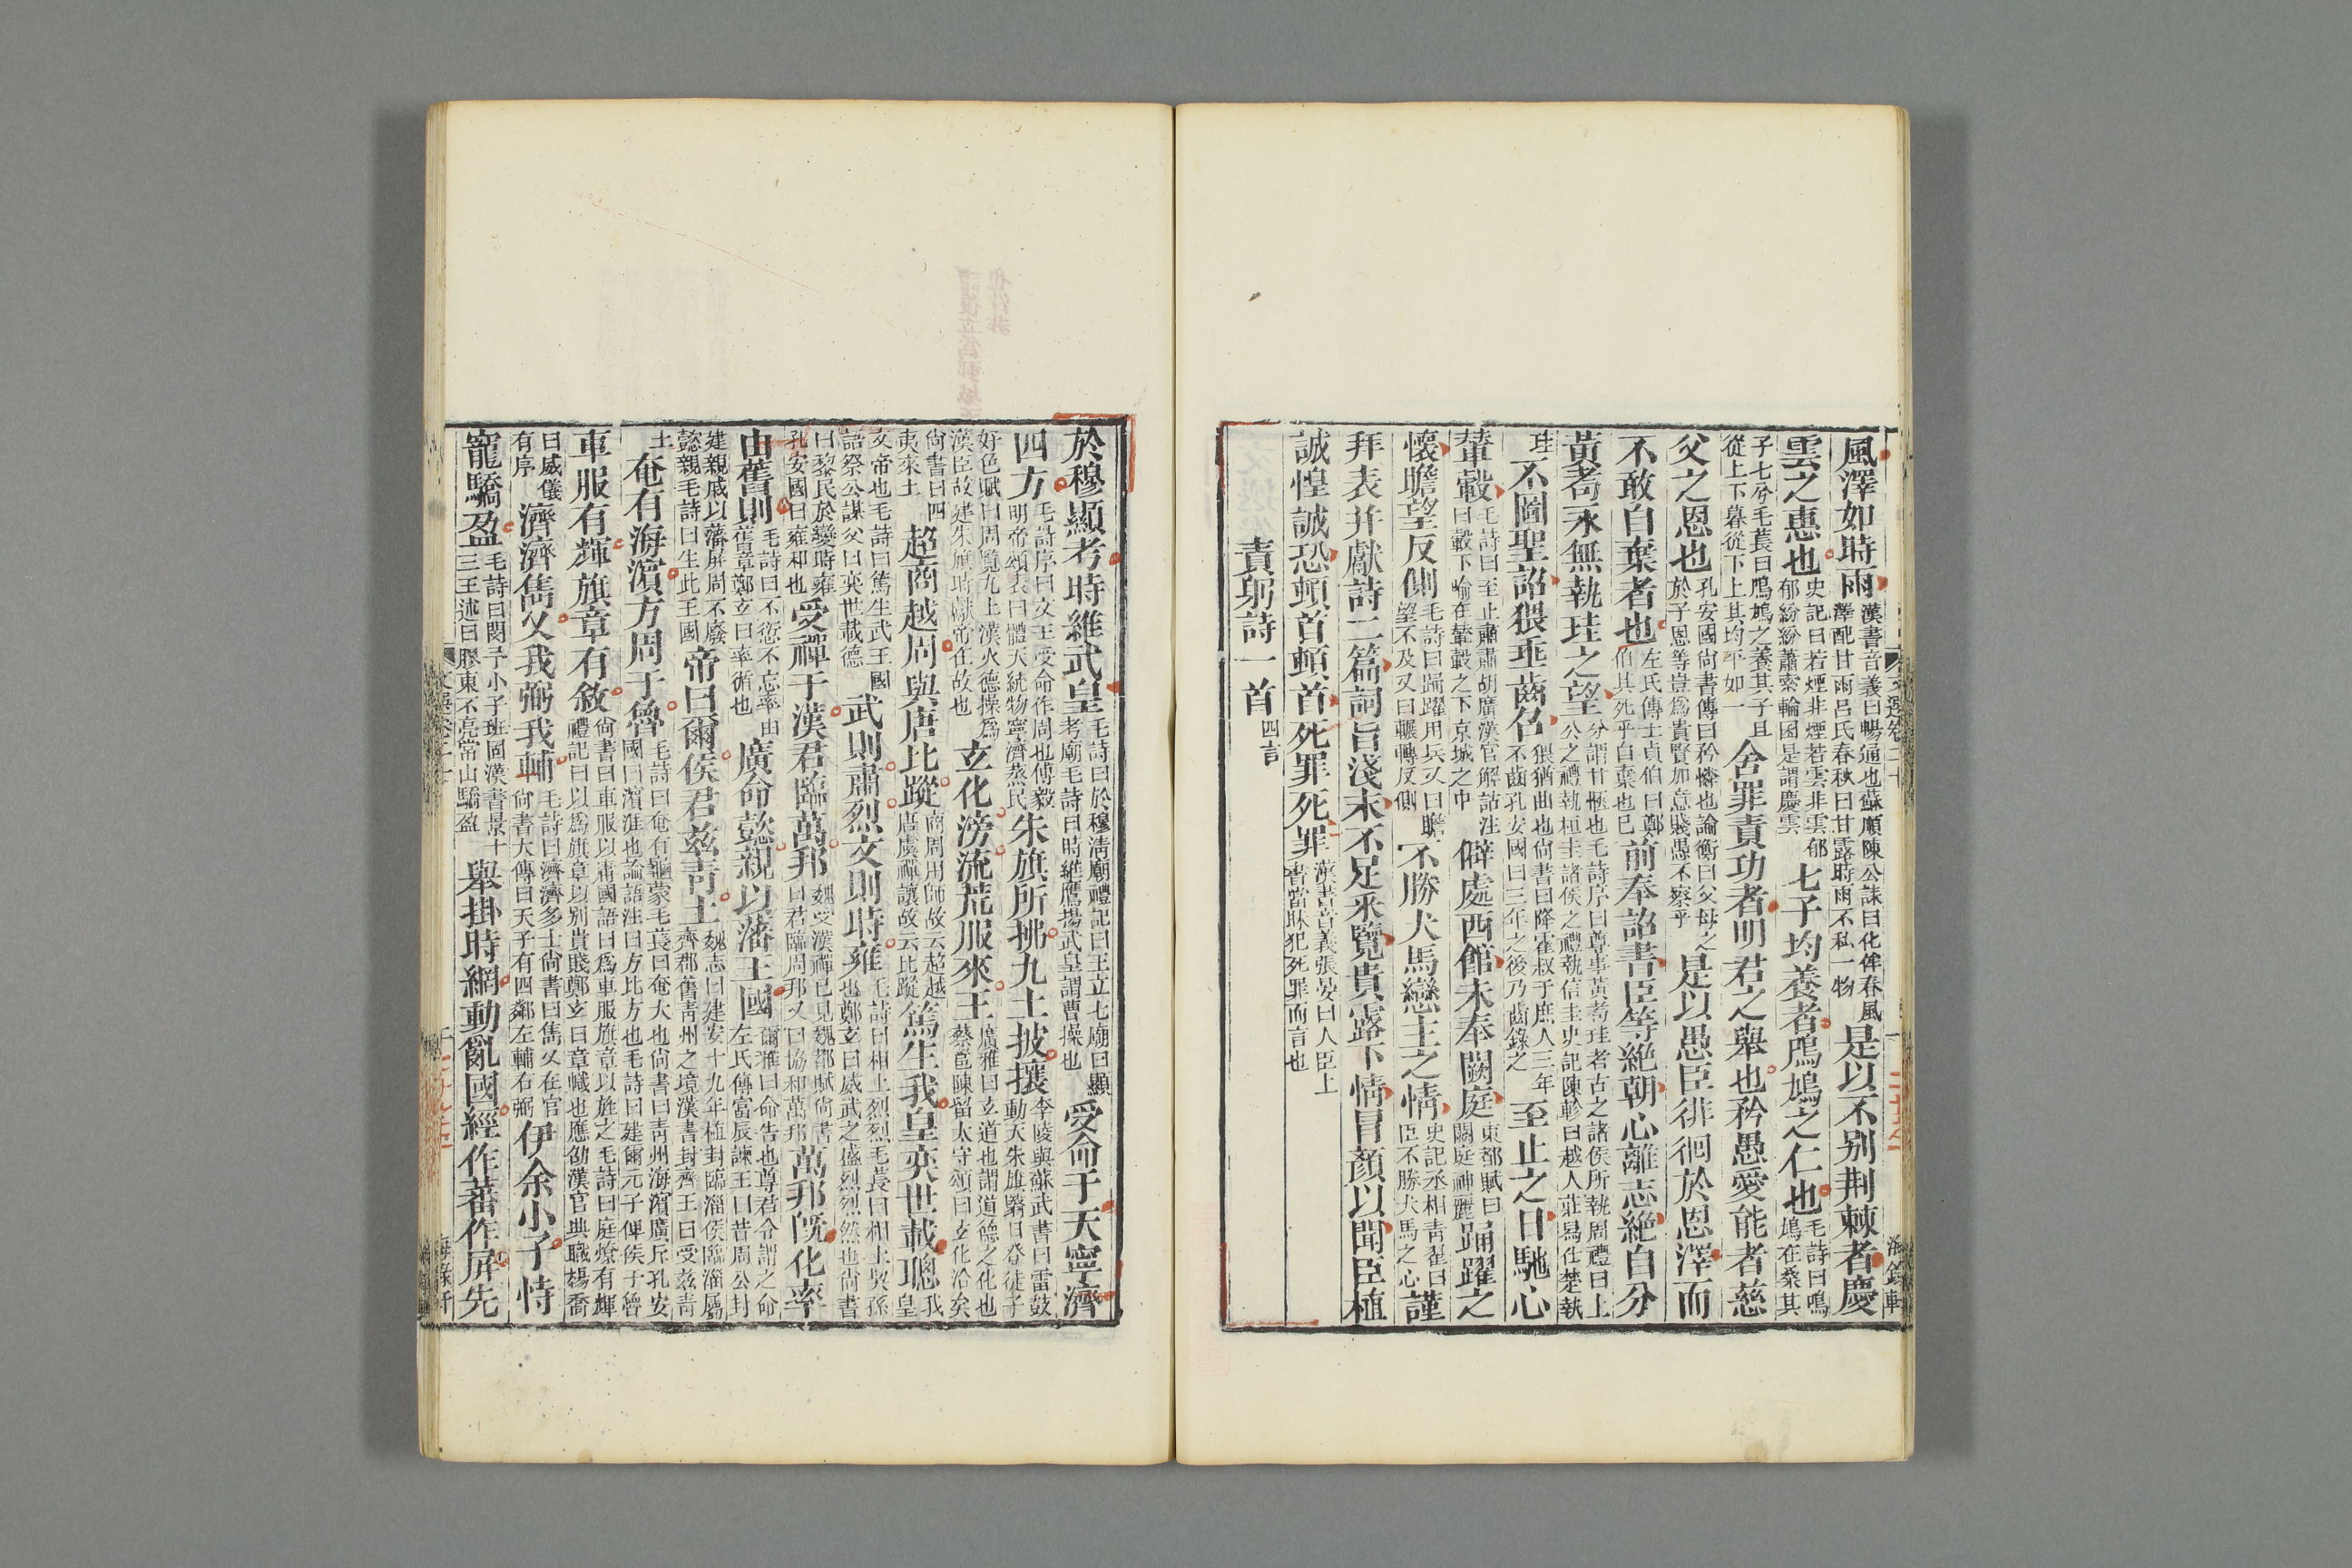 風澤如時雨漢書音義曰暢通也蘇順陳公誄曰化侔春風澤配甘雨呂氏春秋曰甘露時雨不私一物是以不别荆棘者慶
雲之惠也史記曰若煙非煙若雲非雲郁郁紛紛蕭索輪囷是謂慶雲七子均養者鳲鳩之仁也毛詩曰鳲鳩在桑其
子七兮毛萇曰鳲鳩之養其子旦從上下暮從下上其均平如一舍罪責功者明君之舉也矜愚愛能者慈
父之恩也孔安國尙書傳曰矜憐也論衡曰父母之於子恩等豈爲貴賢加意賤愚不察乎是以愚臣徘徊於恩澤而
不敢自棄者也左氏傳士貞伯曰鄭伯其死乎自棄也已前奉詔書臣等絶朝心離志絶自分
黃耇永無執珪之望分謂甘愜也毛詩序曰尊事黃耇珪者古之諸侯所執周禮曰上公之禮執桓圭諸侯之禮執信圭史記陳軫曰越人莊舄仕楚執
珪不圖聖詔猥垂齒召猥猶曲也尙書曰降霍叔于庶人三年不齒孔安國曰三年之後乃齒錄之至止之日馳心
輦轂毛詩曰至止肅肅胡廣漢官解詁注曰轂下喻在輦轂之下京城之中僻處西館未奉闕庭東都賦曰闕庭神麗踊躍之
懷瞻望反側毛詩曰踊躍用兵又曰瞻望不及又曰輾轉反側不勝犬馬戀主之情史記丞相靑翟曰臣不勝犬馬之心謹
拜表并獻詩二篇詞旨淺末不足采覽貴露下情冒顔以聞臣植
誠惶誠恐頓首頓首死罪死罪漢書音義張晏曰人臣上書當昧犯死罪而言也
責躬詩一首四言
於穆顯考時維武皇毛詩曰於穆淸廟禮記曰王立七廟曰顯考廟毛詩曰時維鷹揚武皇謂曹操也受命于天寧濟
四方毛詩序曰文王受命作周也傅毅明帝頌表曰體天統物寧濟蒸民朱旗所拂九土披攘李陵與蘇武書曰雷鼓動天朱旗翳日登徒子
好色賦曰周覽九土漢火德操爲漢臣故建朱旗時獻帝在故也玄化滂流荒服來王廣雅曰玄道也謂道德之化也蔡邕陳留太守頌曰玄化洽矣
尙書曰四夷來王超商越周與唐比蹤商周用師故云超越唐虞禪讓故云比蹤篤生我皇奕世載聰我皇
文帝也毛詩曰篤生武王國語祭公謀父曰奕世載德武則肅烈文則時雍毛詩曰相土烈烈毛萇曰相土契孫也鄭玄曰威武之盛烈烈然也尙書
曰黎民於變時雍孔安國曰雍和也受禪于漢君臨萬邦魏受漢禪已見魏都賦尙書曰君臨周邦又曰協和萬邦萬邦旣化率
由舊則毛詩曰不愆不忘率由舊章鄭玄曰率循也廣命懿親以藩王國爾雅曰命告也尊君令謂之命左氏傳富辰諫王曰昔周公封
建親戚以藩屏周不廢懿親毛詩曰生此王國帝曰爾侯君兹靑土魏志曰建安十九年植封臨淄侯臨淄屬齊郡舊靑州之境漢書封齊王曰受兹靑
土奄有海濱方周于魯毛詩曰奄有龜蒙毛萇曰奄大也尙書曰靑州海濱廣斥孔安國曰濱涯也論語注曰方比方也毛詩曰建爾元子俾侯于魯
車服有輝旗章有敘尙書曰車服以庸國語曰爲車服旗章以旌之毛詩曰庭燎有輝禮記曰以爲旗章以别貴賤鄭玄曰章幟也應劭漢官典職楊喬
曰威儀有序濟濟雋乂我弼我輔毛詩曰濟濟多士尙書曰雋乂在官尙書大傳曰天子有四鄰左輔右弼伊余小子恃
寵驕盈毛詩曰閔予小子班固漢書景十三王述曰膠東不亮常山驕盈舉掛時網動亂國經作蕃作屏先